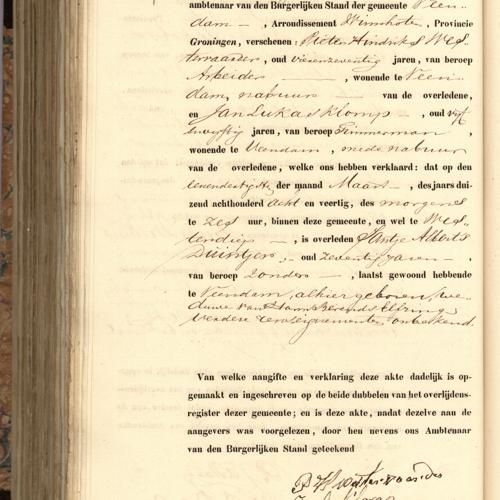 ambtenaar van den Burgerlijken Stand der gemeente Veen-
dam —, Arrondissement Winschoten, Provincie
Groningen, verschenen: Pieter Hindriks Wes-
terwaarder, oud vierenzeventig jaren, van beroep
Arbeider —, wonende te Veen-
dam, nabuur — van de overledene,
en Jan Lukas Klomp —, oud vijf
envyftig jaren, van beroep Timmerman,
wonende te Veendam, mede nabuur
van de overledene, welke ons hebben verklaard: dat op den
zevenden der maand Maart —, des jaars dui-
zend achthonderd acht en veertig, des morgens
te zes uur, binnen deze gemeente, en wel te Wes-
terdiep —, is overleden Jantje Alberts
Duintjer, oud zeventig jaren —
van beroep zonder —, laatst gewoond hebbende
te Veendam, alhier geboren, we-
duwe van Harm Berends Elfring
verdere renseignementen onbekend.
Van welke aangifte en verklaring deze akte dadelijk is op-
gemaakt en ingeschreven op de beide dubbelen van het overlijdens-
register dezer gemeente; en is deze akte, nadat dezelve aan de
aangevers was voorgelezen, door hen nevens ons Ambtenaar
van den Burgerlijken Stand geteekend
P H Westerwaarder